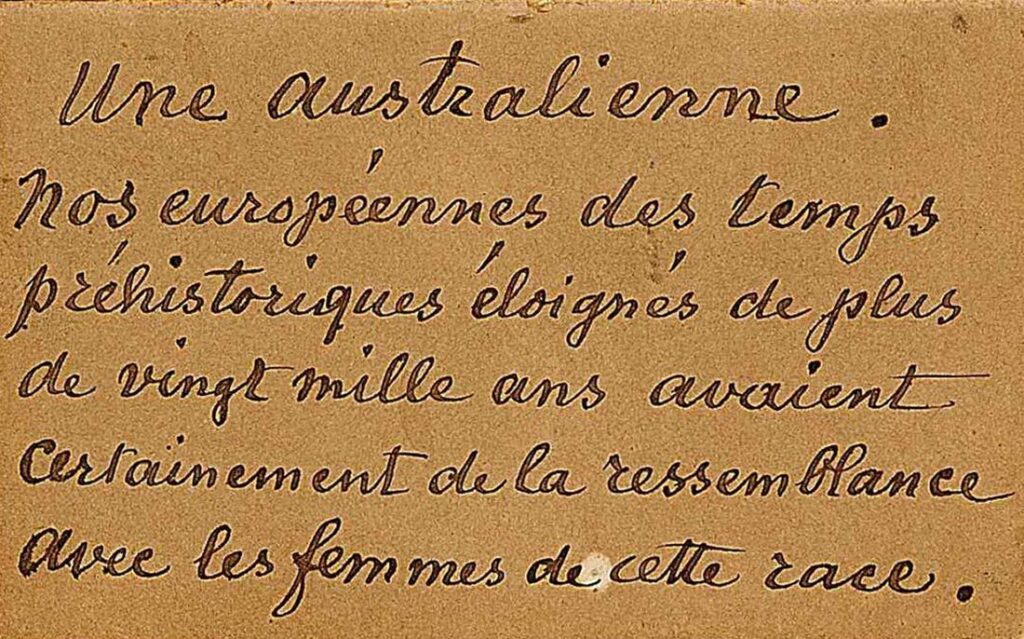 Une australienne.
Nos européennes des temps
préhistoriques éloignés de plus
de vingt mille ans avaient
certainement de la ressemblance
avec les femmes de cette race.